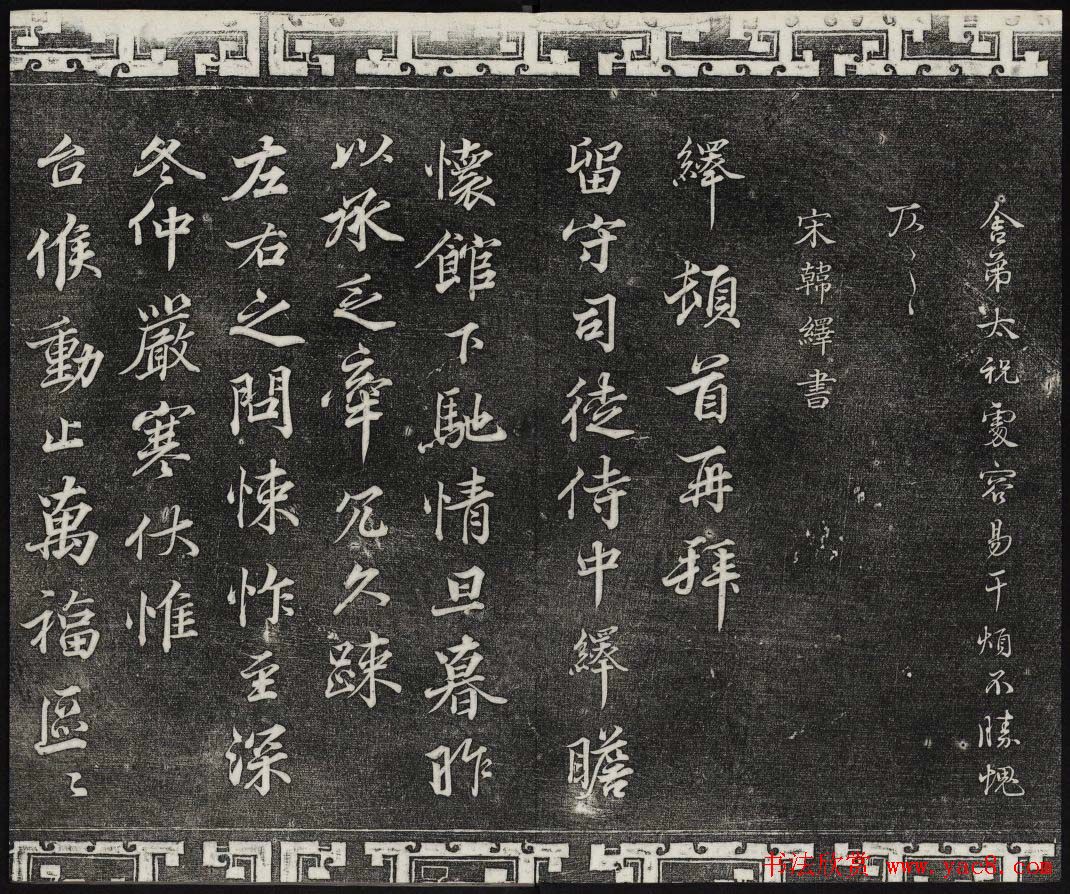 舍弟太祝處容易干煩不勝愧
仄〻〻
宋韓繹書
繹頓首再拜
留守司徒侍中繹瞻
懷館下馳情旦暮昨
以承乏牽冗久疎
左右之問悚怍至深
冬仲嚴寒伏惟
台候動止萬福區〻
书法欣赏 www.yac8.com